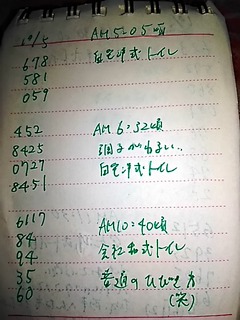 10/5 AM5:05頃
678 自宅洋式トイレ
581
059
452 AM6:32頃
8425 調子がわるい…
0727 自宅洋式トイレ
8451
6117 AM10:40頃
84 会社和式トイレ
94
35 普通のひびき方
60 (笑)